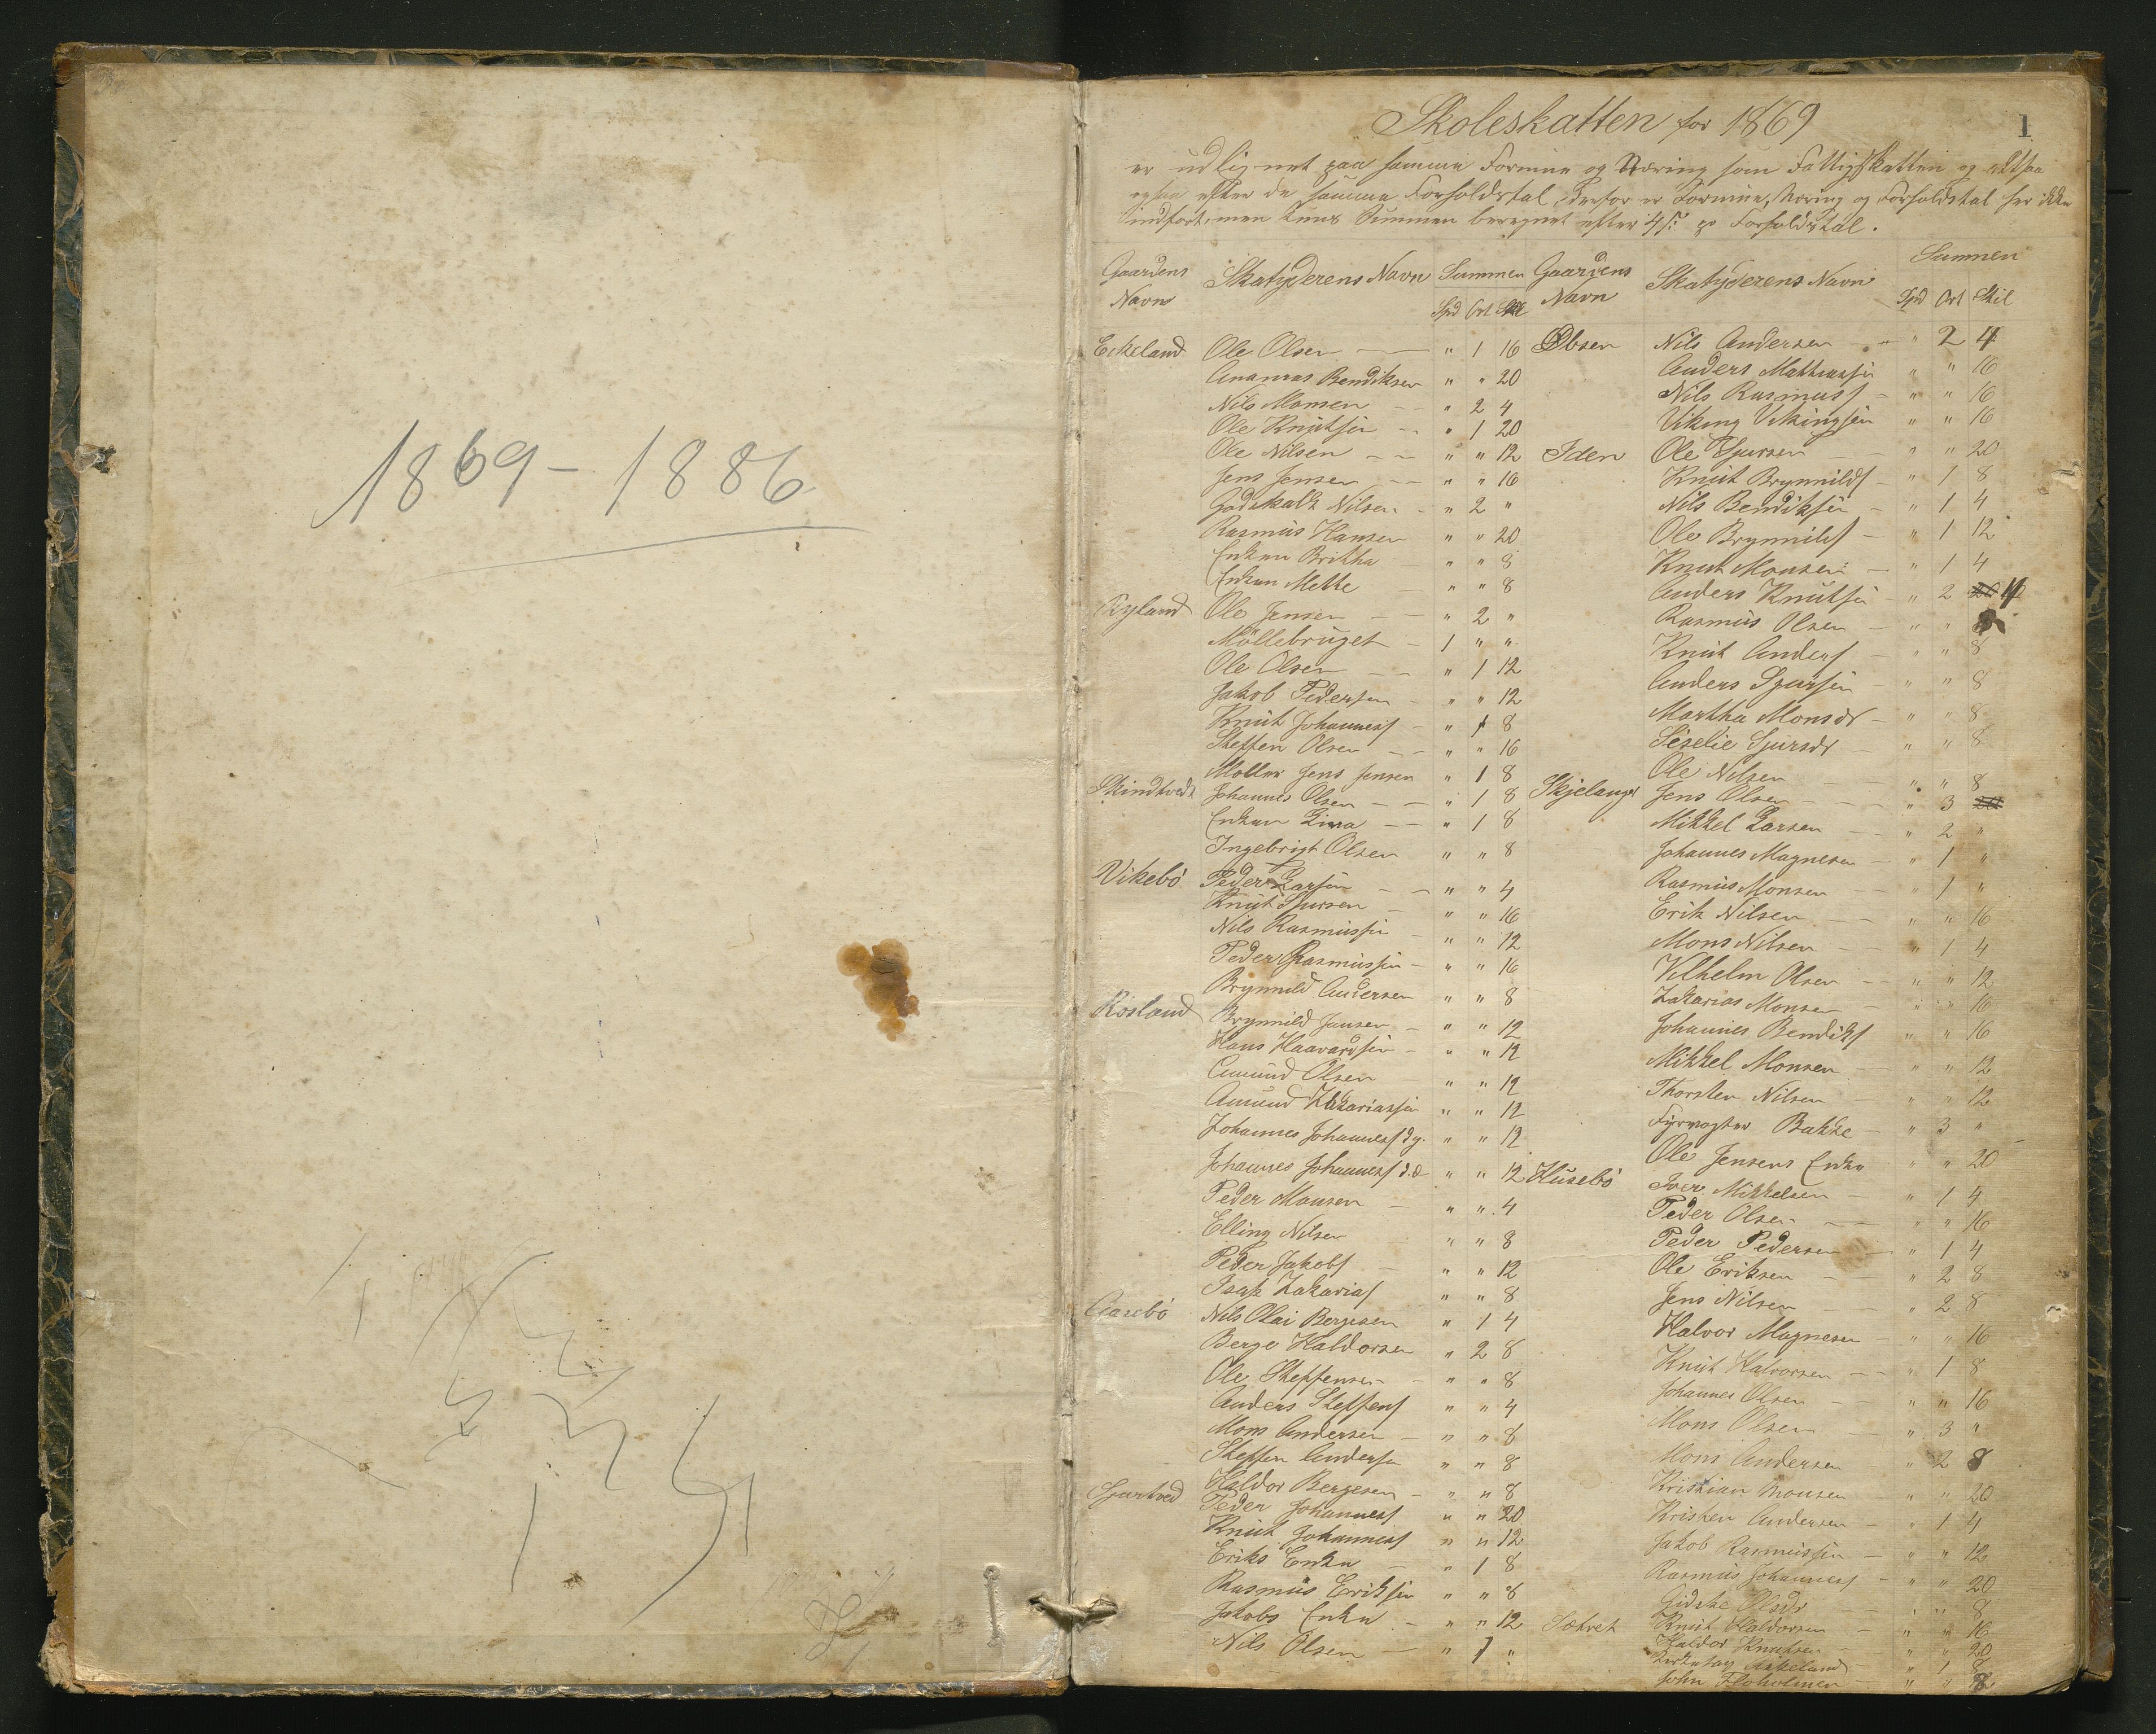 1869-1886
1
Skoleskatten for 1869
er udlignet paa samme Formue og Næring som Fattigskatten og altsaa
ogsaa efter de samme Forholdstal, derfor er Formue, Næring og Forholdstal her ikke
indført, men kuns Summen beregnet efter 4 s. pr Forholdstal.
Gaardens Navn Skatyderens Navn Summen
Spd Ort Skil
Eikeland Ole Olsen — " 1 16
Ananias Bendiksen " " 20
Nils Monsen — " 2 4
Ole Knutsen — " 1 20
Ole Nilsen — — " " 12
Jens Jensen — — " " 16
Godskalk Nilsen — " 2 "
Rasmus Hansen " " 20
Enken Britha " " 8
Enken Mette — " " 8
Ryland Ole Jensen — " 2 "
Möllebruget — 1 " "
Ole Olsen — " 1 12
Jakob Pedersen — " " 12
Knut Johannes — " 1 8
Steffen Olsen — — " " 16
Moller Jens Jensen " 1 8
Skindtvedt Johannes Olsen — — " 1 8
Enken — — " 1 8
Ingebrigt Olsen " " 8
Vikebö Peder Larsen — — " " 4
Knut Sjursen — " " 16
Nils Rasmussen — " " 12
Peder Rasmussen — " " 16
Brynnild Andersen " " 8
Rosland Brynnild Jansen — " " 12
Hans Haavardsen — " " 12
Amund Olsen — " " 12
Amund Zakariassen " " 12
Johannes Johannes d y. " " 12
Johannes Johannes d. æ " " 12
Peder Monsen — " " 4
Elling Nilsen " " 8
Peder Jakobs — " " 12
Isak Zakarias " " 8
Aasebö Nils Olai Bergesen " 1 4
Berge Haldorsen " 2 8
Ole Steffensen — " " 8
Anders Steffens " " 4
Mons Andersen — " " 8
Steffen Andersen " " 8
Sjurtved Haldor Bergesen — " " 8
Peder Johannes " " 20
Knut Johannes " " 12
Eriks Enke — " 1 8
Rasmus Eriksen " " 8
Jakobs Enke — " " 12
Nils Olsen — " 1 "
Gaardens Navn Skatyderens Navn Summen
Spd Ort Skil
Nils Andersen — " 2 4
Anders Mathiassen " " 16
Nils Rasmus — " " 16
Viking Vikingsen " " 16
Iden Ole Sjursen — " " 20
Knut Brynnilds — " 1 8
Nils Bendiksen — " 1 4
Ole Brynnilds — " 1 12
Knut Monsen — " 1 4
Anders Knutsen — " 2
Rasmus Olsen — " "
Knut Anders — " " 8
Anders Sjursen — " " 8
Martha Monsdr — " " 8
Siselie Sjursdr — " " 8
Ole Nilsen — " " 8
Skjelanger Jens Olsen — — " 3
Mikkel Larsen — " 2 "
Johannes Magnesen — " 1 "
Rasmus Monsen — " 1 "
Erik Nilsen — " " 16
Mons Nilsen — " 1 4
Vilhelm Olsen — " " 12
Zakarias Monsen — " " 16
Johannes Bendiks " " 16
Mikkel Monsen — " " 12
Thorsten Nilsen — " " 12
Fyrvogter Bakke — " 3 "
Ole Jensens Enke " " 20
Husebö Iver Mikkelsen — " 1 4
Peder Olsen — " " 16
Peder Pedersen — " 1 4
Ole Eriksen — " 2 8
Jens Nilsen — " 2 8
Halvor Magnesen — " " 16
Knut Halvorsen — " 1 8
Johannes Olsen — " " 16
Mons Olsen — " 3 "
Mons Andersen — " 2 8
Kristian Monsen — " " 20
Kristen Andersen — " 1 4
Jakob Rasmussen — " " 12
Rasmus Johannes — " " 20
Gidske Olsdr " " 8
Sætret Knut Haldorsen — " " 16
Haldor Knutsen — " " 20
Eikeland " 1 8
John Floholmen — " "